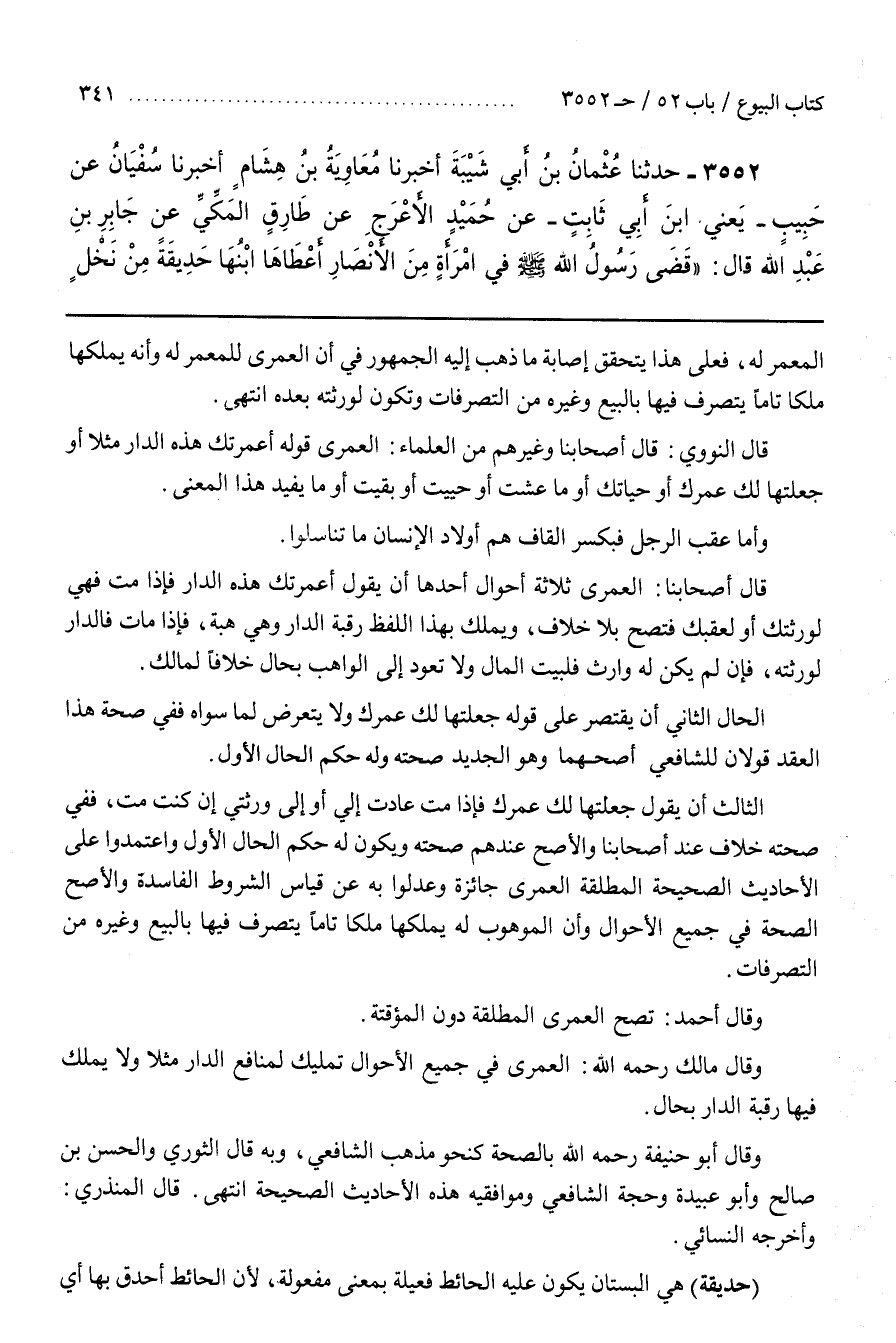 كتاب البيوع / باب ٥٢ / حـ ٣٥٥٢ ........................................ ٣٤١
٣٥٥٢ ـ حدثنا عُثْمانُ بنُ أَبي شَيْبَةَ أخبرنا مُعَاوِيَةُ بنُ هِشَامٍ أخبرنا سُفْيَانُ عن
حَبِيبٍ ـ يَعني ابنَ أَبِي ثَابِتٍ ـ عن حُمَيْدٍ الأَعْرَجِ عن طَارِقٍ المَكِّيِّ عن جَابِرِ بنِ
عَبْدِ الله قال: «قَضَى رَسُولُ الله ﷺ في امْرَأَةٍ مِنَ الأَنْصَارِ أَعْطَاهَا ابْنُهَا حَدِيقَةً مِنْ نَخْلٍ
المعمر له، فعلى هذا يتحقق إصابة ما ذهب إليه الجمهور في أن العمرى للمعمر له وأنه يملكها
ملكا تاماً يتصرف فيها بالبيع وغيره من التصرفات وتكون لورثته بعده انتهى.
قال النووي: قال أصحابنا وغيرهم من العلماء: العمرى قوله أعمرتك هذه الدار مثلا أو
جعلتها لك عمرك أو حياتك أو ما عشت أو حييت أو بقيت أو ما يفيد هذا المعنى.
وأما عقب الرجل فبكسر القاف هم أولاد الإنسان ما تناسلوا.
قال أصحابنا: العمرى ثلاثة أحوال أحدها أن يقول أعمرتك هذه الدار فإذا مت فهي
لورثتك أو لعقبك فتصح بلا خلاف، ويملك بهذا اللفظ رقبة الدار وهي هبة، فإذا مات فالدار
لورثته، فإن لم يكن له وارث فلبيت المال ولا تعود إلى الواهب بحال خلافاً لمالك.
الحال الثاني أن يقتصر على قوله جعلتها لك عمرك ولا يتعرض لما سواه ففي صحة هذا
العقد قولان للشافعي أصحهما وهو الجديد صحته وله حكم الحال الأول.
الثالث أن يقول جعلتها لك عمرك فإذا مت عادت إلي أو إلى ورثتي إن كنت مت، ففي
صحته خلاف عند أصحابنا والأصح عندهم صحته ويكون له حكم الحال الأول واعتمدوا على
الأحاديث الصحيحة المطلقة العمرى جائزة وعدلوا به عن قياس الشروط الفاسدة والأصح
الصحة في جميع الأحوال وأن الموهوب له يملكها ملكا تاماً يتصرف فيها بالبيع وغيره من
التصرفات.
وقال أحمد: تصح العمرى المطلقة دون المؤقتة.
وقال مالك رحمه الله: العمرى في جميع الأحوال تمليك لمنافع الدار مثلا ولا يملك
فيها رقبة الدار بحال.
وقال أبو حنيفة رحمه الله بالصحة كنحو مذهب الشافعي، وبه قال الثوري والحسن بن
صالح وأبو عبيدة وحجة الشافعي وموافقيه هذه الأحاديث الصحيحة انتهى. قال المنذري:
وأخرجه النسائي.
(حديقة) هي البستان يكون عليه الحائط فعيلة بمعنى مفعولة، لأن الحائط أحدق بها أي